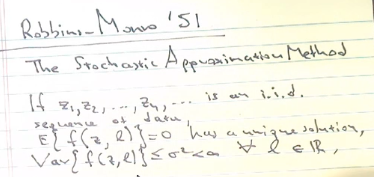 Robbins-Monro '51
The Stochastic Approximation Method
If z₁, z₂, ..., zₙ, ... is an i.i.d.
sequence of data,
E{f(z, l)}=0 has a unique solution,
Var{f(z,l)} ≤ σ² < ∞ ∀ l ∈ ℝ,